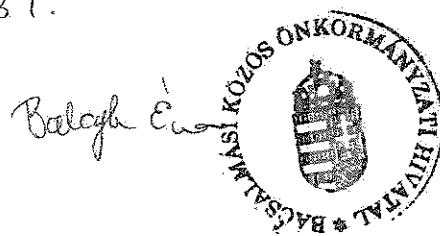 31.
Balogh Éva
BÁCSALMÁSI KÖZÖS ÖNKORMÁNYZATI HIVATAL *